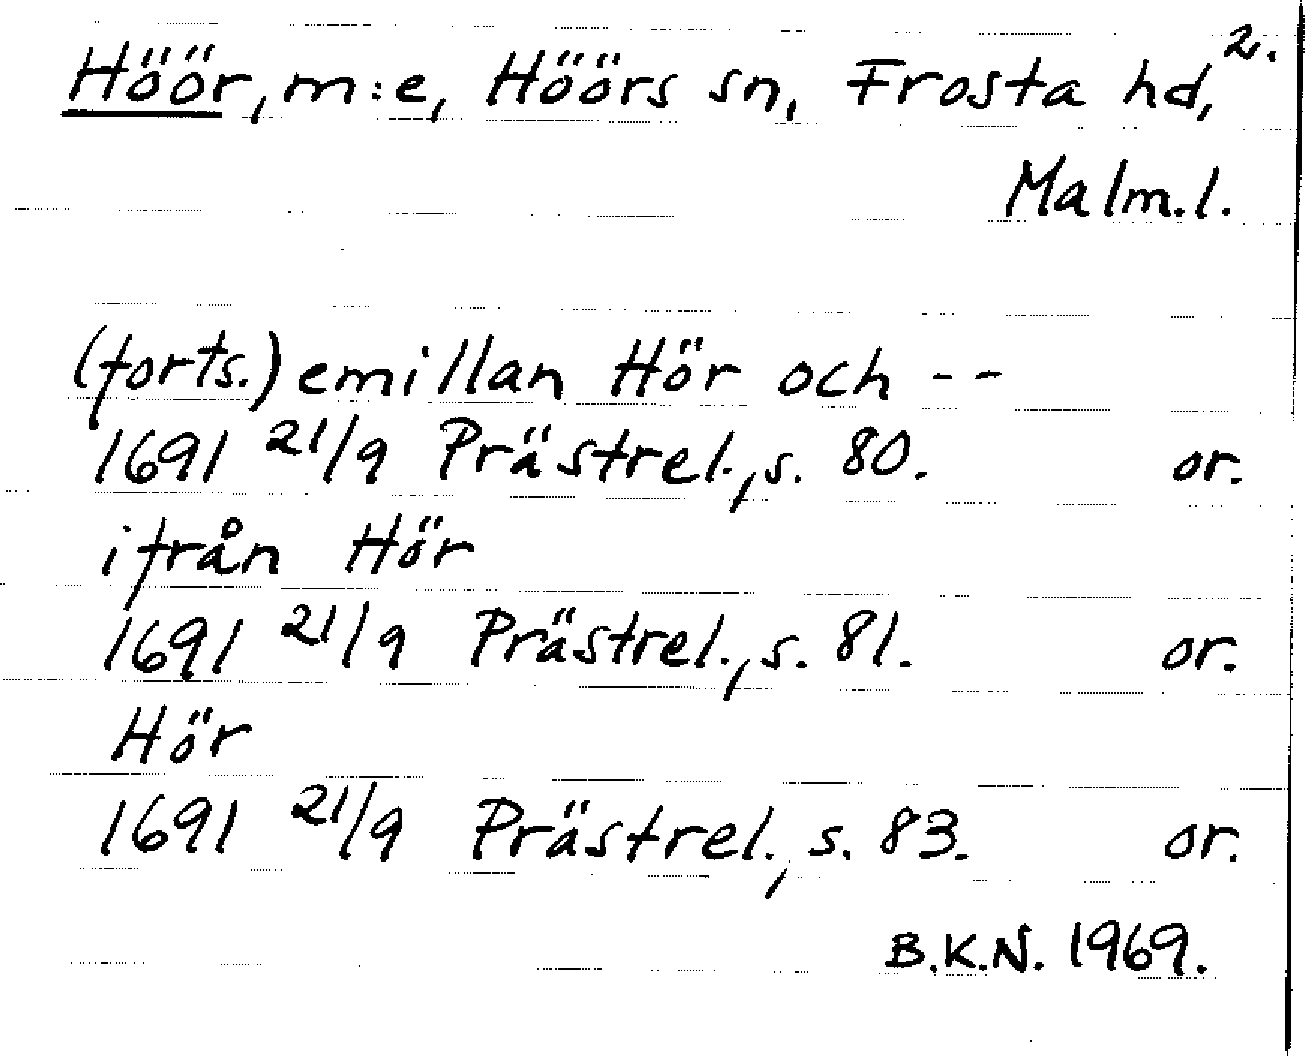 Höör, m:e, Höörs sn, Frosta hd, 2.
Malm.l.
(forts.) emillan Hör och - -
1691 21/9 Prästrel., s. 80. or.
ifrån Hör
1691 21/9 Prästrel., s. 81. or.
Hör
1691 21/9 Prästrel., s. 83. or.
B.K.N. 1969.